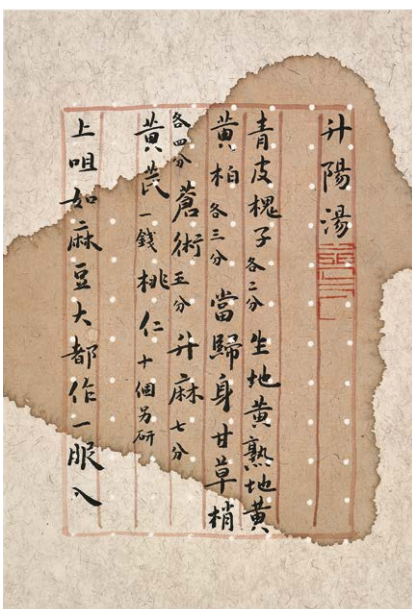 升陽湯
青皮槐子各二分生地黃熟地黃
黃柏各三分當歸身甘草梢
各四分蒼術五分升麻七分
黃芪一錢桃仁十個另研
上咀如麻豆大都作一服入